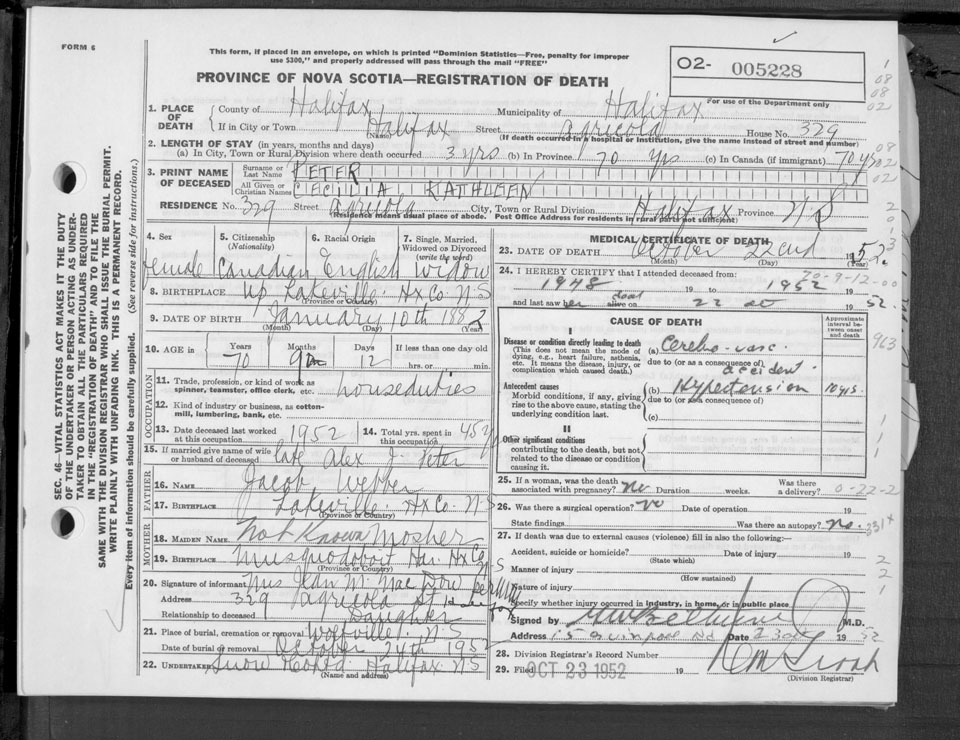 FORM 6
This form, if placed in an envelope, on which is printed "Dominion Statistics—Free, penalty for improper
use $300," and properly addressed will pass through the mail "FREE"
PROVINCE OF NOVA SCOTIA—REGISTRATION OF DEATH
O2- 005228
For use of the Department only
1. PLACE OF DEATH County of Halifax Municipality of Halifax
If in City or Town Halifax Street Agricola House No. 329
(Name) (If death occurred in a hospital or institution, give the name instead of street and number)
2. LENGTH OF STAY (in years, months and days)
(a) In City, Town or Rural Division where death occurred 3 yrs (b) In Province 70 yrs (c) In Canada (if immigrant) 70 yrs
3. PRINT NAME OF DECEASED Surname or Last Name PETER
All Given or Christian Names CECILIA KATHLEEN
RESIDENCE No. 329 Street Agricola City, Town or Rural Division Halifax Province N S
(Residence means usual place of abode. Post Office Address for residents in rural parts not sufficient)
4. Sex 5. Citizenship (Nationality) 6. Racial Origin 7. Single, Married, Widowed or Divorced (write the word)
female Canadian English Widow
8. BIRTHPLACE Up Lakeville Hx Co. N S
(Province or Country)
9. DATE OF BIRTH January 10th 1882
(Month) (Day) (Year)
10. AGE in Years Months Days If less than one day old
70 9 12 hrs. or min.
OCCUPATION
11. Trade, profession, or kind of work as spinner, teamster, office clerk, etc. houseduties
12. Kind of industry or business, as cotton-mill, lumbering, bank, etc.
13. Date deceased last worked at this occupation 1952 14. Total yrs. spent in this occupation 45 y
15. If married give name of wife or husband of deceased late Alex J. Peter
FATHER
16. Name Jacob Webber
17. Birthplace Lakeville Hx Co. N S
(Province or Country)
MOTHER
18. MAIDEN NAME Not Known Mosher
19. BIRTHPLACE Musquodoboit Har. Hx Co N S
(Province or Country)
20. Signature of informant Mrs Jean M. Mac
Address 329 Agricola St Halifax
Relationship to deceased Daughter
21. Place of burial, cremation or removal Wolfville N S
Date of burial or removal October 24th 1952
22. Undertaker Snow Co Ltd Halifax N S
(Name and address)
MEDICAL CERTIFICATE OF DEATH
23. DATE OF DEATH October 22nd 1952.
(Month) (Day) (Year)
24. I HEREBY CERTIFY that I attended deceased from: 20-9-12-00
1948 19 to 1952 19
and last saw her dead alive on 22 oct 19 52
CAUSE OF DEATH
Approximate interval between onset and death
I
Disease or condition directly leading to death
(This does not mean the mode of dying, e.g., heart failure, asthenia, etc. It means the disease, injury, or complication which caused death.)
(a) Cerebro-vasc.
due to (or as a consequence of) accident.
Antecedent causes
Morbid conditions, if any, giving rise to the above cause, stating the underlying condition last.
(b) Hypertension 10 yrs.
due to (or as a consequence of)
(c)
II
Other significant conditions
contributing to the death, but not related to the disease or condition causing it.
25. If a woman, was the death associated with pregnancy? No Duration weeks. Was there a delivery? 0-22-2
26. Was there a surgical operation? No Date of operation 19
State findings Was there an autopsy? No. 331x
27. If death was due to external causes (violence) fill in also the following:—
Accident, suicide or homicide? Date of injury 19
(State which)
Manner of injury
(How sustained)
Nature of injury
Specify whether injury occurred in industry, in home, or in public place
Signed by M.D.
Address 15 Quinpool Rd Date 23 oct 19 52
28. Division Registrar's Record Number
29. Filed OCT 23 1952 19
(Division Registrar)
SEC. 46—VITAL STATISTICS ACT MAKES IT THE DUTY
OF THE UNDERTAKER OR PERSON ACTING AS UNDER-
TAKER TO OBTAIN ALL THE PARTICULARS REQUIRED
IN THE "REGISTRATION OF DEATH" AND TO FILE THE
SAME WITH THE DIVISION REGISTRAR WHO SHALL ISSUE THE BURIAL PERMIT.
WRITE PLAINLY WITH UNFADING INK. THIS IS A PERMANENT RECORD.
Every item of information should be carefully supplied. (See reverse side for instructions.)
963